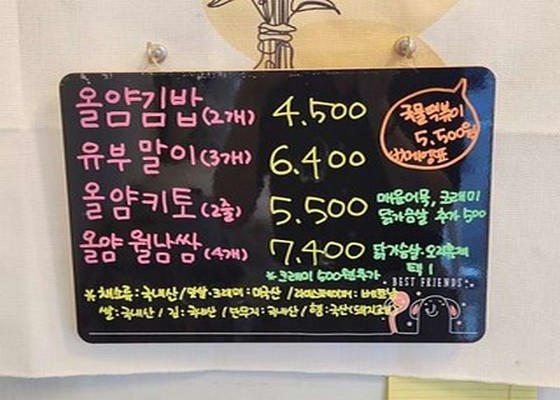 올얌김밥(2개) 4.500
국물떡볶이
5.500원
유부말이(3개) 6.400
올얌키토(2줄) 5.500
매운어묵, 크래미
닭가슴살 추가 500
올얌 월남쌈(4개) 7.400
닭가슴살.오리훈제
택 1
*크래미 500원추가
BEST FRIENDS
*채소류:국내산/맛살.크래미:미국산/라이스페이퍼:베트남
쌀:국내산/김:국내산/단무지:국내산/햄:국산(돼지고기)